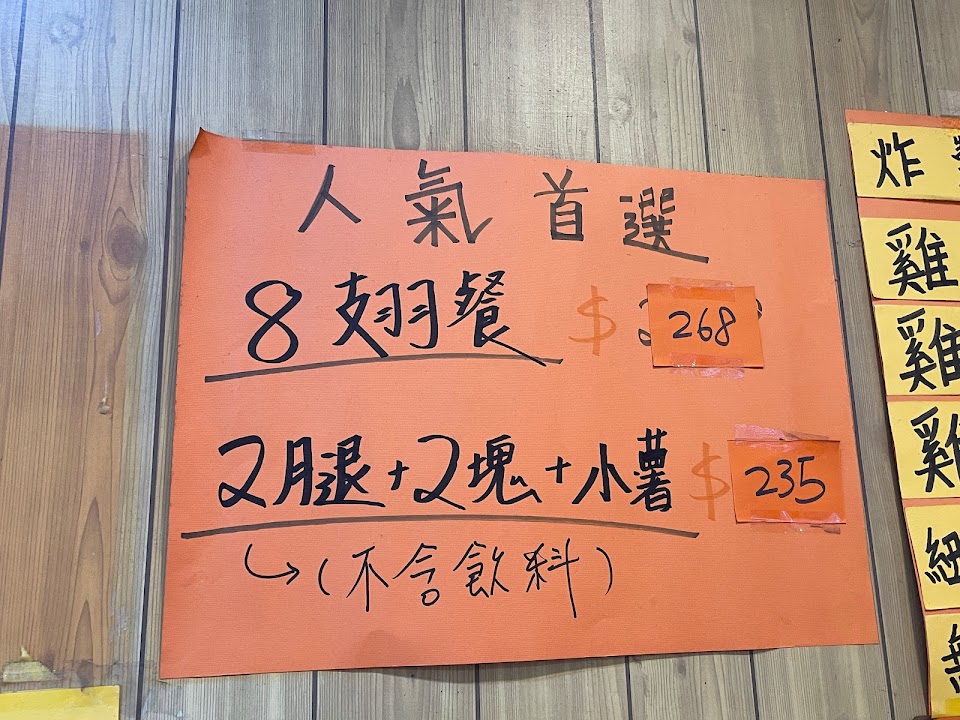 人氣首選
8翅餐 $268
2腿+2塊+小薯 $235
(不含飲料)
炸
雞
雞
雞
紐